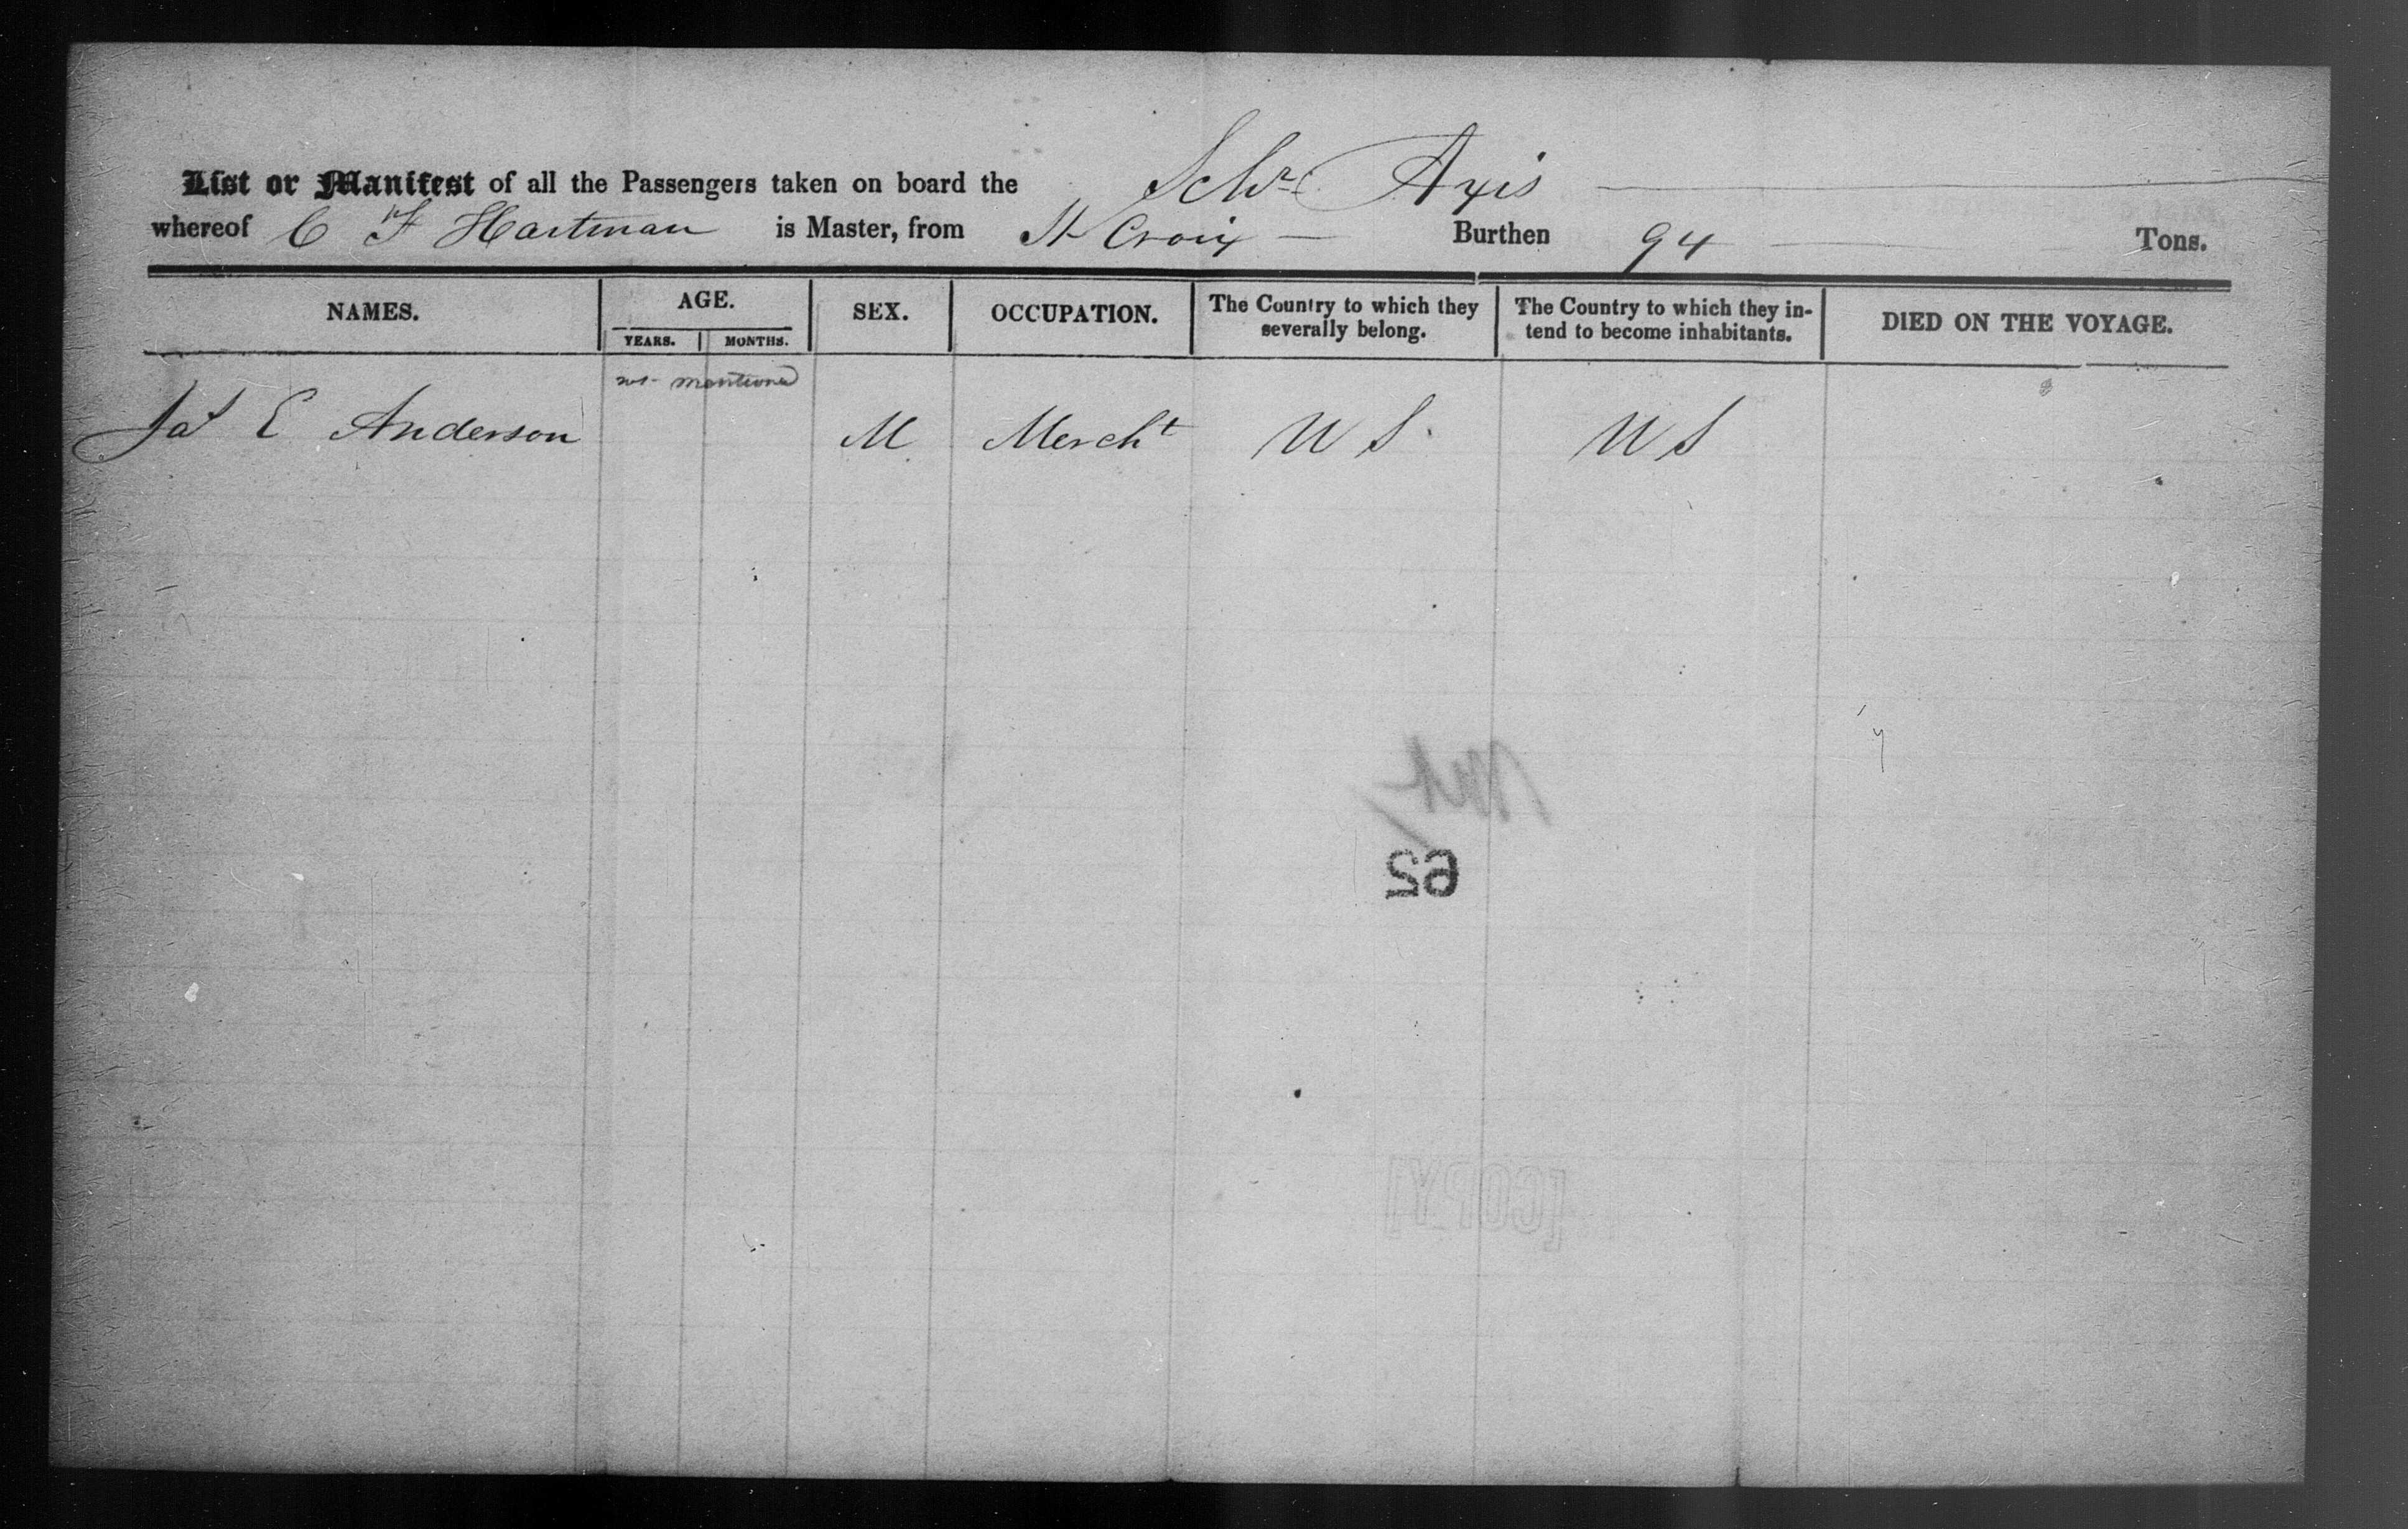 List or Manifest of all the Passengers taken on board the Schr Axis
whereof C F Hartman is Master, from St Croix Burthen 94 Tons.
NAMES. AGE. SEX. OCCUPATION. The Country to which they severally belong. The Country to which they intend to become inhabitants. DIED ON THE VOYAGE.
YEARS. MONTHS.
not mentioned
Jas E Anderson M Mercht U S U S
62
[COPY]